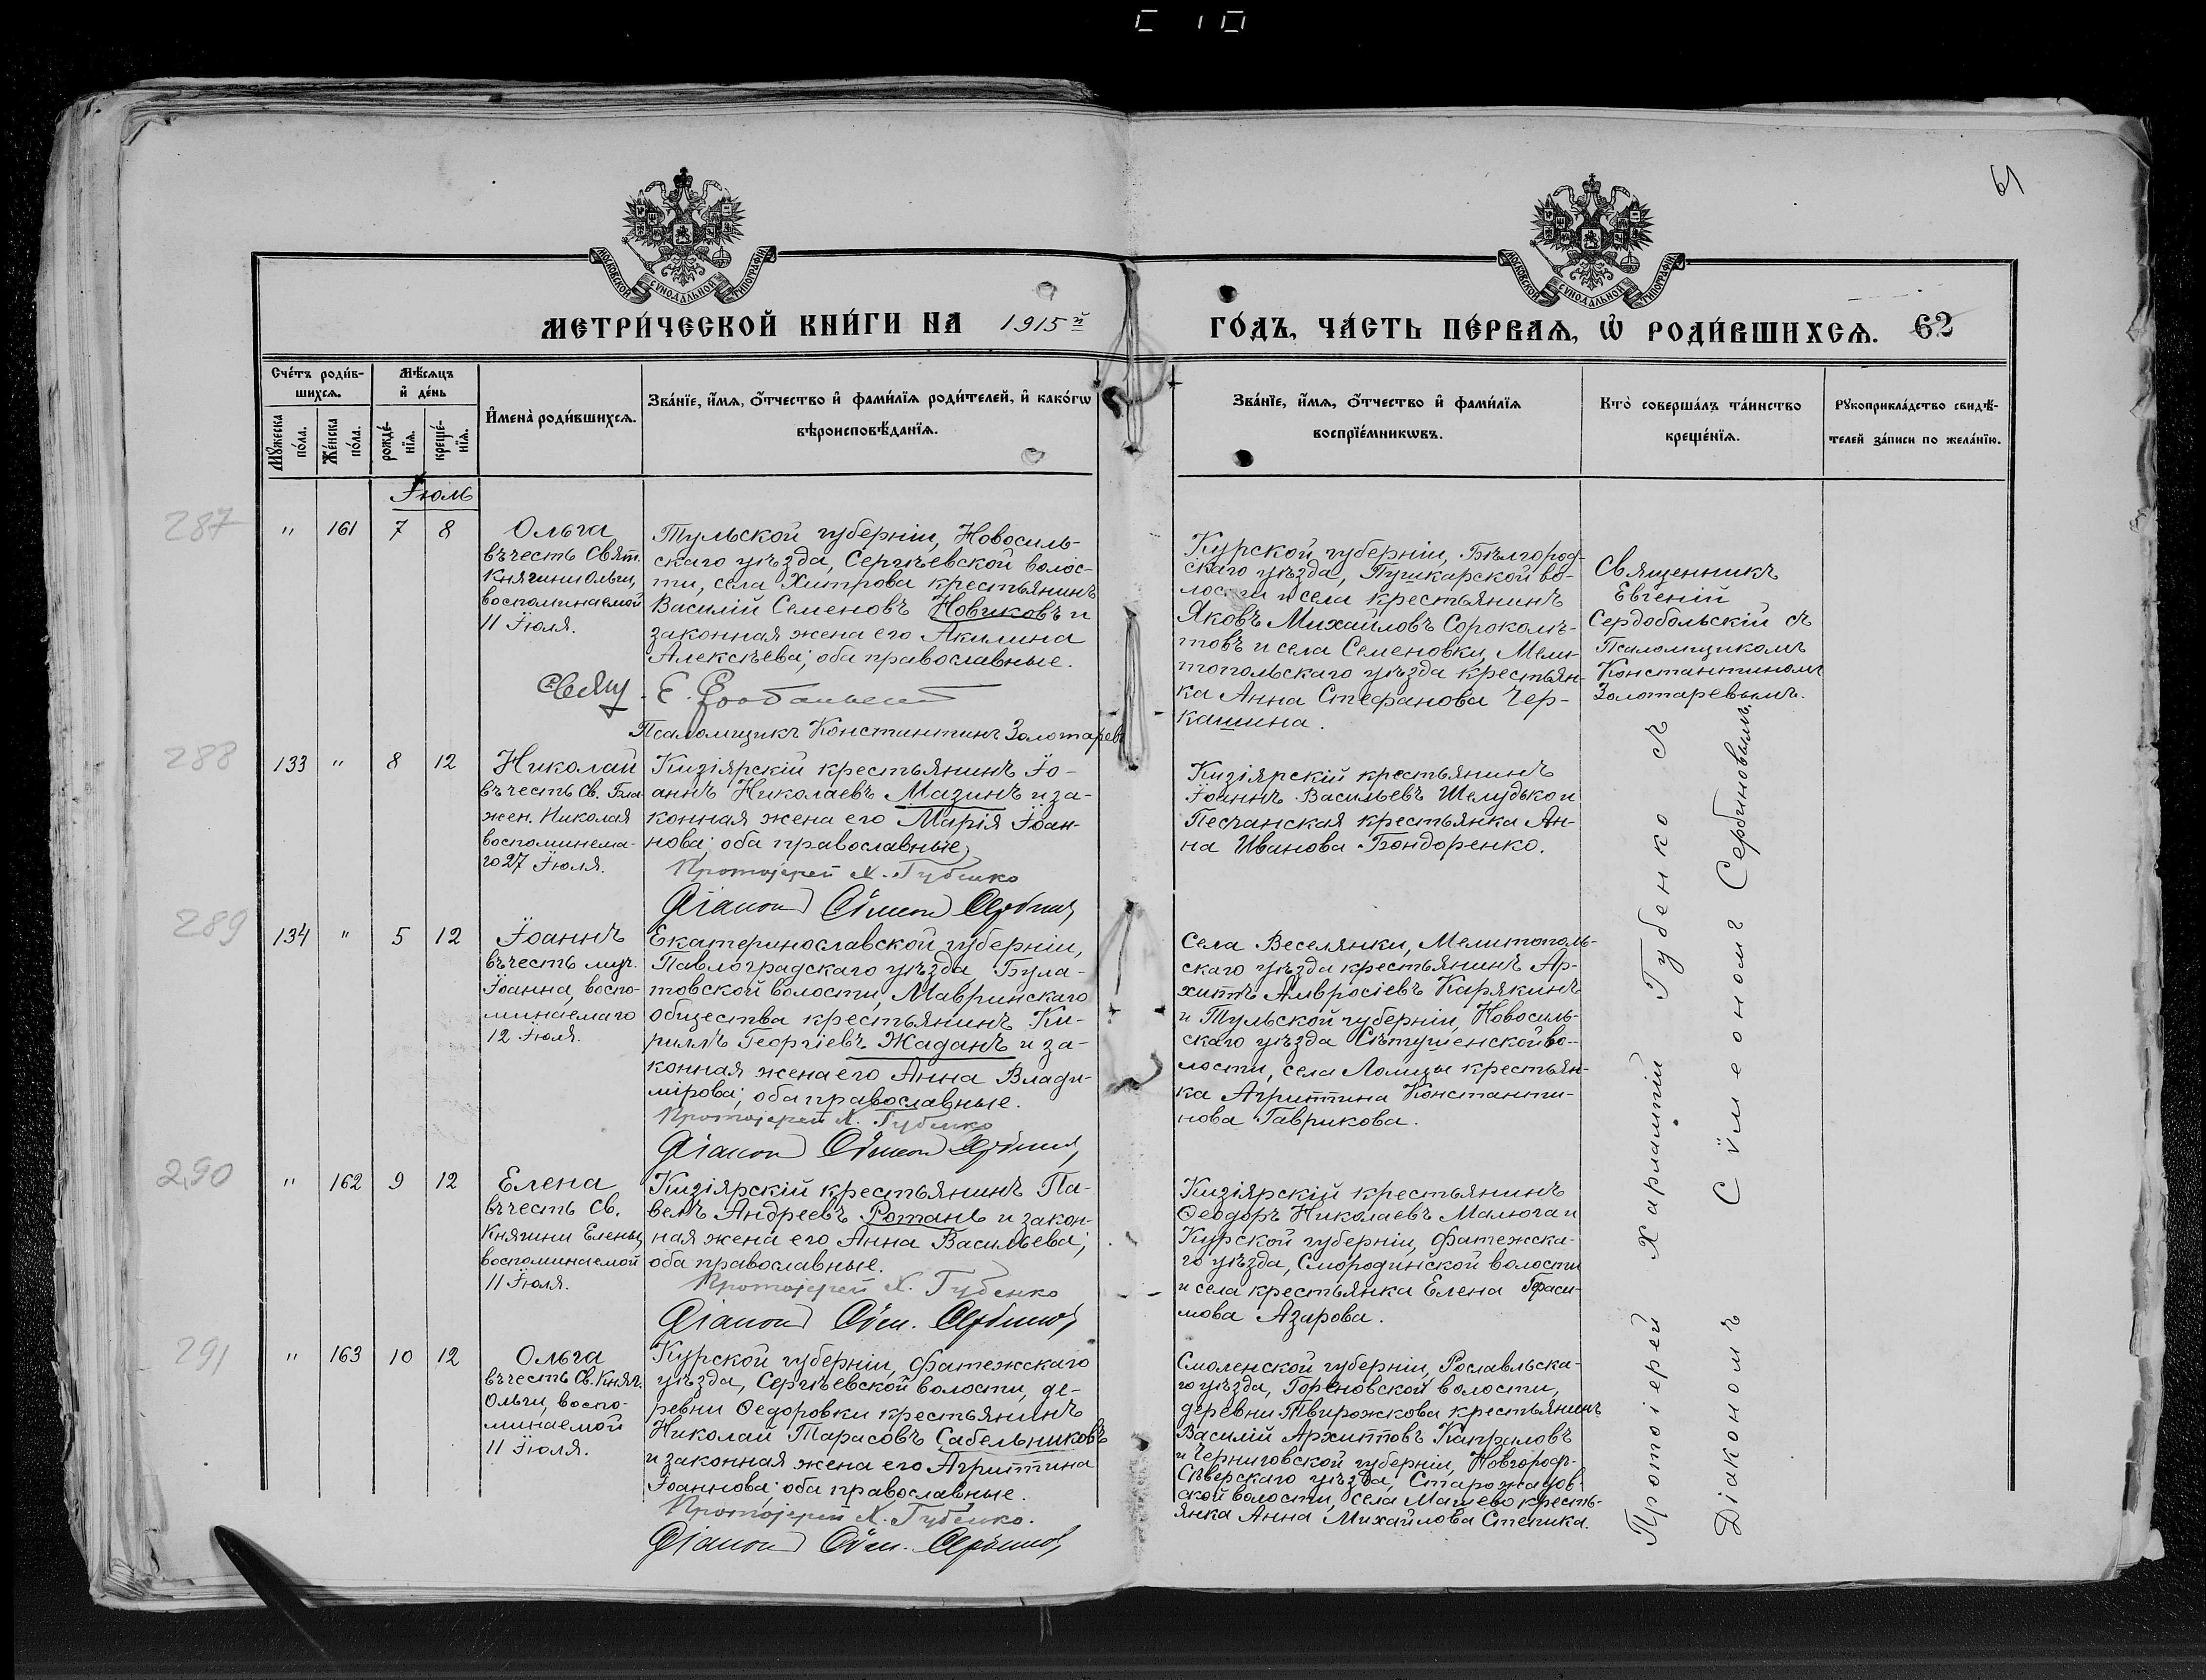 61
МОСКОВСКОЙ СѴНОДАЛЬНОЙ ТИПОГРАФІИ
МОСКОВСКОЙ СѴНОДАЛЬНОЙ ТИПОГРАФІИ
МЕТРИ́ЧЕСКОЙ КНИ́ГИ НА 1915й
ГО́ДЪ, ЧА́СТЬ ПЕ́РВАѦ, Ѡ РОДИ́ВШИХСѦ. 62
Сче́тъ роди́в-
шихсѧ.
Мꙋ́жеска
по́ла.
Же́нска
по́ла.
Мѣ́сѧцъ
и҆ де́нь
рожде́-
нїѧ.
креще́-
нїѧ.
И҆мена̀ роди́вшихсѧ.
Зва́нїе, и҆́мѧ, ѻ҆́тчество и҆ фами́лїѧ роди́телей, и҆ како́гѡ
вѣроисповѣ́данїѧ.
Зва́нїе, и҆́мѧ, ѻ҆́тчество и҆ фами́лїѧ
воспрїе́мникѡвъ.
Кто̀ соверша́лъ та́инство
креще́нїѧ.
Рꙋкоприкла́дство свидѣ́-
телей за́писи по жела́нїю.
Іюль
287
" 161 7 8
Ольга
въ честь Свят.
Княгини Ольги,
воспоминаемой
11 Іюля.
Тульской губерніи, Новосиль-
скаго уѣзда, Сергѣевской волос-
ти, села Хитрова крестьянинъ
Василій Семеновъ Новиковъ и
законная жена его Акилина
Алексѣева; оба православные.
Свящ. Е.
Псаломщикъ Константинъ Золотаревъ
Курской губерніи, Бѣлгород-
скаго уѣзда, Пушкарской во-
лости и села крестьянинъ
Яковъ Михаиловъ Сороколѣ-
товъ и села Семеновки, Мели-
топольскаго уѣзда крестьян-
ка Анна Стефанова Чер-
кашина.
Священникъ
Евгеній
Сердобольскій съ
Псаломщикомъ
Константиномъ
Золотаревымъ.
288
133 " 8 12
Николай
въ честь Св. Бла-
жен. Николая
воспоминема-
го 27 Іюля.
Кизіярскій крестьянинъ Іо-
аннъ Николаевъ Мазинъ и за-
конная жена его Марія Іоан-
нова; оба православные,
Протоіерей Х. Губенко
Діаконъ Сѵмеонъ Сербиновъ
Кизіярскій крестьянинъ
Іоаннъ Васильевъ Шелудько и
Песчанская крестьянка Ан-
на Иванова Бондоренко.
289
134 " 5 12
Іоаннъ
въ честь муч.
Іоанна, воспо-
минаемаго
12 Іюля.
Екатеринославской губерніи,
Павлоградскаго уѣзда, Була-
товской волости, Мавринскаго
общества крестьянинъ Ки-
риллъ Георгіевъ Жаданъ и за-
конная жена его Анна Влади-
мірова; оба православные.
Протоіерей Х. Губенко
Діаконъ Сѵмеонъ Сербиновъ
Села Веселянки, Мелитополь-
скаго уѣзда крестьянинъ Ар-
хиппъ Амвросіевъ Карякинъ
и Тульской губерніи, Новосиль-
скаго уѣзда Сѣтушенской во-
лости, села Ломицы крестьян-
ка Агриппина Константи-
нова Гаврикова.
290
" 162 9 12
Елена
въ честь Св.
Княгини Елены,
воспоминаемой
11 Іюля.
Кизіярскій крестьянинъ Па-
велъ Андреевъ Ротань и закон-
ная жена его Анна Васильева;
оба православные.
Протоіерей Х. Губенко
Діаконъ Сѵм. Сербиновъ
Кизіярскій крестьянинъ
Ѳеодоръ Николаевъ Малюга и
Курской губерніи, Фатежска-
го уѣзда, Смородинской волости
и села крестьянка Елена Гераси-
мова Азарова.
291
" 163 10 12
Ольга
въ честь Св. Княг.
Ольги, воспо-
минаемой
11 Іюля.
Курской губерніи, Фатежскаго
уѣзда, Сергѣевской волости, де-
ревни Ѳедоровки крестьянинъ
Николай Тарасовъ Сабельниковъ
и законная жена его Агриппина
Іоаннова; оба православные.
Протоіерей Х. Губенко.
Діаконъ Сѵм. Сербиновъ
Смоленской губерніи, Рославльска-
го уѣзда, Гореновской волости,
деревни Твирожкова крестьянинъ
Василій Архипповъ Капраловъ
и Черниговской губерніи, Новгород-
Сѣверскаго уѣзда,
ской волости, села Машево кресть-
янка Анна Михайлова Степика.
Протоіерей Харлампій Губенко съ
Діакономъ Сѵмеономъ Сербиновымъ.